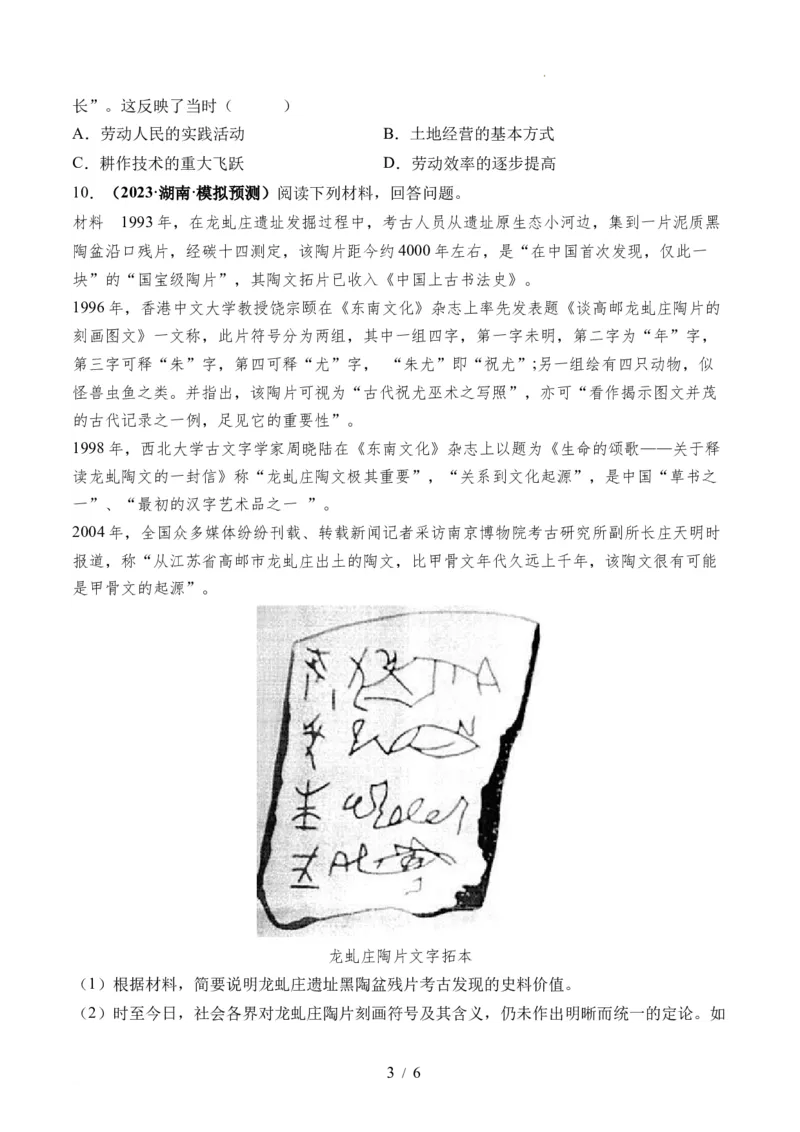 长”。这反映了当时（　　　）
A．劳动人民的实践活动 B．土地经营的基本方式
C．耕作技术的重大飞跃 D．劳动效率的逐步提高
10．（2023·湖南·模拟预测）阅读下列材料，回答问题。
材料　1993年，在龙虬庄遗址发掘过程中，考古人员从遗址原生态小河边，集到一片泥质黑
陶盆沿口残片，经碳十四测定，该陶片距今约4000年左右，是“在中国首次发现，仅此一
块”的“国宝级陶片”，其陶文拓片已收入《中国上古书法史》。
1996年，香港中文大学教授饶宗颐在《东南文化》杂志上率先发表题《谈高邮龙虬庄陶片的
刻画图文》一文称，此片符号分为两组，其中一组四字，第一字未明，第二字为“年”字，
第三字可释“朱”字，第四可释“尤”字， “朱尤”即“祝尤”;另一组绘有四只动物，似
怪兽虫鱼之类。并指出，该陶片可视为“古代祝尤巫术之写照”，亦可“看作揭示图文并茂
的古代记录之一例，足见它的重要性”。
1998年，西北大学古文字学家周晓陆在《东南文化》杂志上以题为《生命的颂歌——关于释
读龙虬陶文的一封信》称“龙虬庄陶文极其重要”，“关系到文化起源”，是中国“草书之
一”、“最初的汉字艺术品之一 ”。
2004年，全国众多媒体纷纷刊载、转载新闻记者采访南京博物院考古研究所副所长庄天明时
报道，称“从江苏省高邮市龙虬庄出土的陶文，比甲骨文年代久远上千年，该陶文很有可能
是甲骨文的起源”。
龙虬庄陶片文字拓本
（1）根据材料，简要说明龙虬庄遗址黑陶盆残片考古发现的史料价值。
（2）时至今日，社会各界对龙虬庄陶片刻画符号及其含义，仍未作出明晰而统一的定论。如
3 / 6